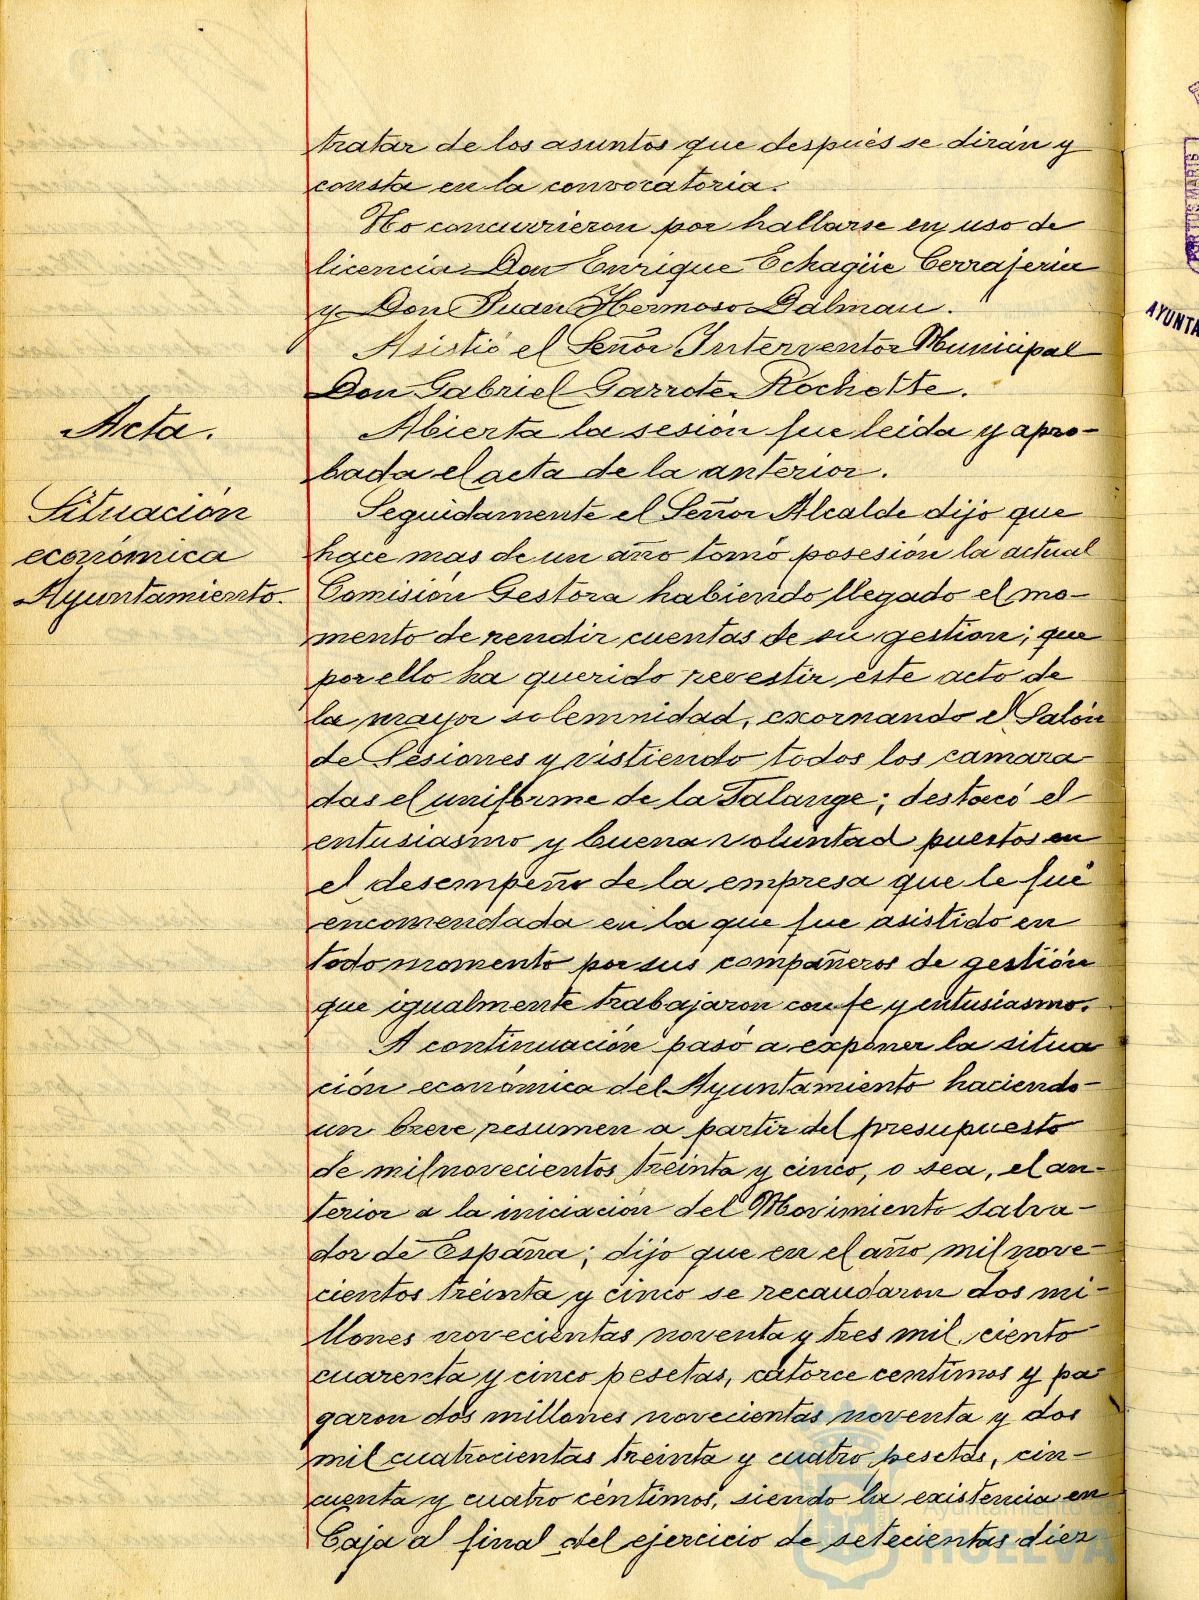 tratar de los asuntos que después se dirán y
consta en la convocatoria.
No concurrieron por hallarse en uso de
licencia Don Enrique Echagüe Cerrajería
y Don Juan Hermoso Dalmau.
Asistió el Señor Interventor Municipal
Don Gabriel Garrote Rochette.
Acta.
Abierta la sesión fue leida y apro-
bada el acta de la anterior.
Situación
económica
Ayuntamiento.
Seguidamente el Señor Alcalde dijo que
hace mas de un año tomó posesión la actual
Comisión Gestora habiendo llegado el mo-
mento de rendir cuentas de su gestion; que
por ello ha querido revestir este acto de
la mayor solemnidad, exornando el Salón
de Sesiones y vistiendo todos los camara
das el uniforme de la Falange; destacó el
entusiasmo y buena voluntad puestos en
el desempeño de la empresa que le fué
encomendada en la que fue asistido en
todo momento por sus compañeros de gestión
que igualmente trabajaron con fe y entusiasmo.
A continuación pasó a exponer la situa
ción económica del Ayuntamiento haciendo
un breve resumen a partir del presupuesto
de mil novecientos treinta y cinco, o sea, el an-
terior a la iniciación del Movimiento Salva-
dor de España; dijo que en el año mil nove-
cientos treinta y cinco se recaudaron dos mi-
llones novecientas noventa y tres mil ciento
cuarenta y cinco pesetas, catorce centimos y pa
garon dos millones novecientas noventa y dos
mil cuatrocientas treinta y cuatro pesetas, cin-
cuenta y cuatro céntimos, siendo la existencia en
Caja al final del ejercicio de setecientas diez
PORTUS MARIS
AYUNTA
Ayuntamiento de
HUELVA